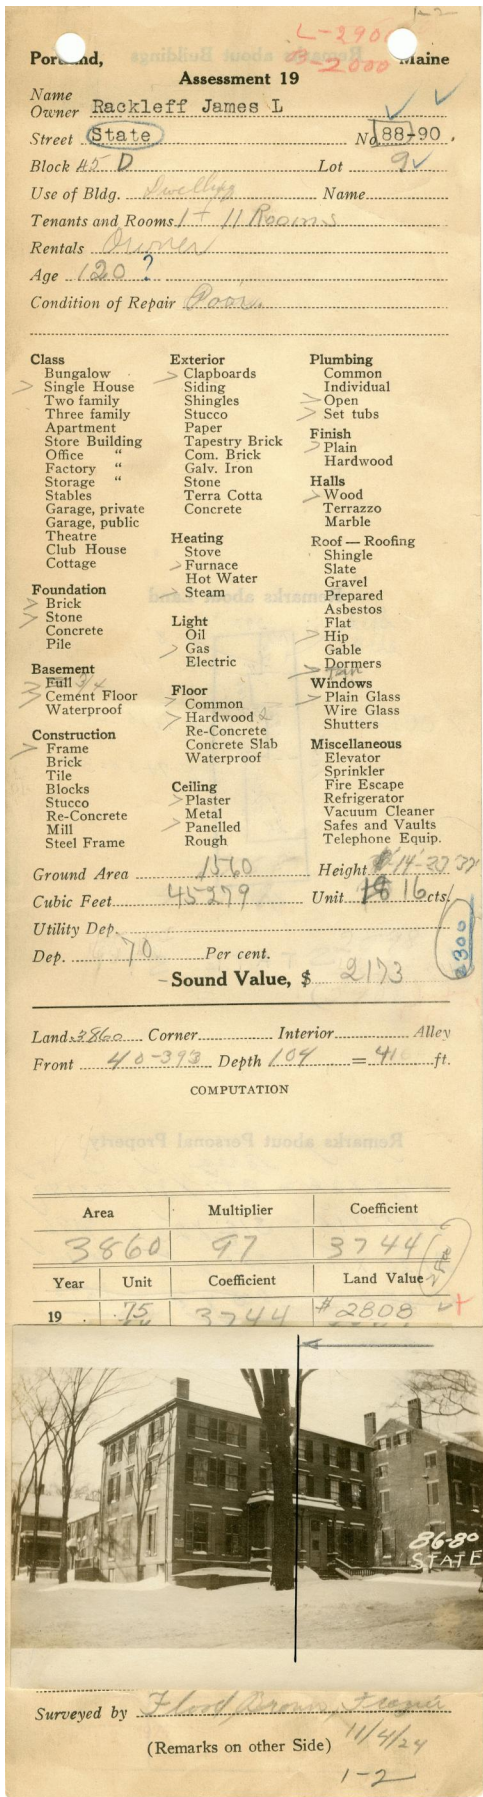 1-2
L-2900
B-2000
Portland, Maine
Assessment 19
Name
Owner Rackleff James L
Street State No 88-90.
Block 45 D Lot 9
Use of Bldg. Dwelling Name
Tenants and Rooms 1 + 11 Rooms
Rentals Owner
Age 120 ?
Condition of Repair Poor.
Class
Bungalow
Single House
Two family
Three family
Apartment
Store Building
Office "
Factory "
Storage "
Stables
Garage, private
Garage, public
Theatre
Club House
Cottage
Foundation
Brick
Stone
Concrete
Pile
Basement
Full 3/4
Cement Floor
Waterproof
Construction
Frame
Brick
Tile
Blocks
Stucco
Re-Concrete
Mill
Steel Frame
Exterior
Clapboards
Siding
Shingles
Stucco
Paper
Tapestry Brick
Com. Brick
Galv. Iron
Stone
Terra Cotta
Concrete
Heating
Stove
Furnace
Hot Water
Steam
Light
Oil
Gas
Electric
Floor
Common
Hardwood 2
Re-Concrete
Concrete Slab
Waterproof
Ceiling
Plaster
Metal
Panelled
Rough
Plumbing
Common
Individual
Open
Set tubs
Finish
Plain
Hardwood
Halls
Wood
Terrazzo
Marble
Roof — Roofing
Shingle
Slate
Gravel
Prepared
Asbestos
Flat
Hip
Gable
Dormers
Windows
Plain Glass
Wire Glass
Shutters
Miscellaneous
Elevator
Sprinkler
Fire Escape
Refrigerator
Vacuum Cleaner
Safes and Vaults
Telephone Equip.
Ground Area 1560 Height 14-23-32
Cubic Feet 45279 Unit 16 cts.
Utility Dep.
2300
Dep. 70 Per cent.
Sound Value, $ 2173
Land 3860 Corner Interior Alley
Front 40-393 Depth 104 = 41 ft.
COMPUTATION
Area Multiplier Coefficient
3860 97 3744
Year Unit Coefficient Land Value
19 75 3744 $2808
86-80
STATE
Surveyed by Flood, Brown, Frazier
(Remarks on other Side) 11/4/24
1-2